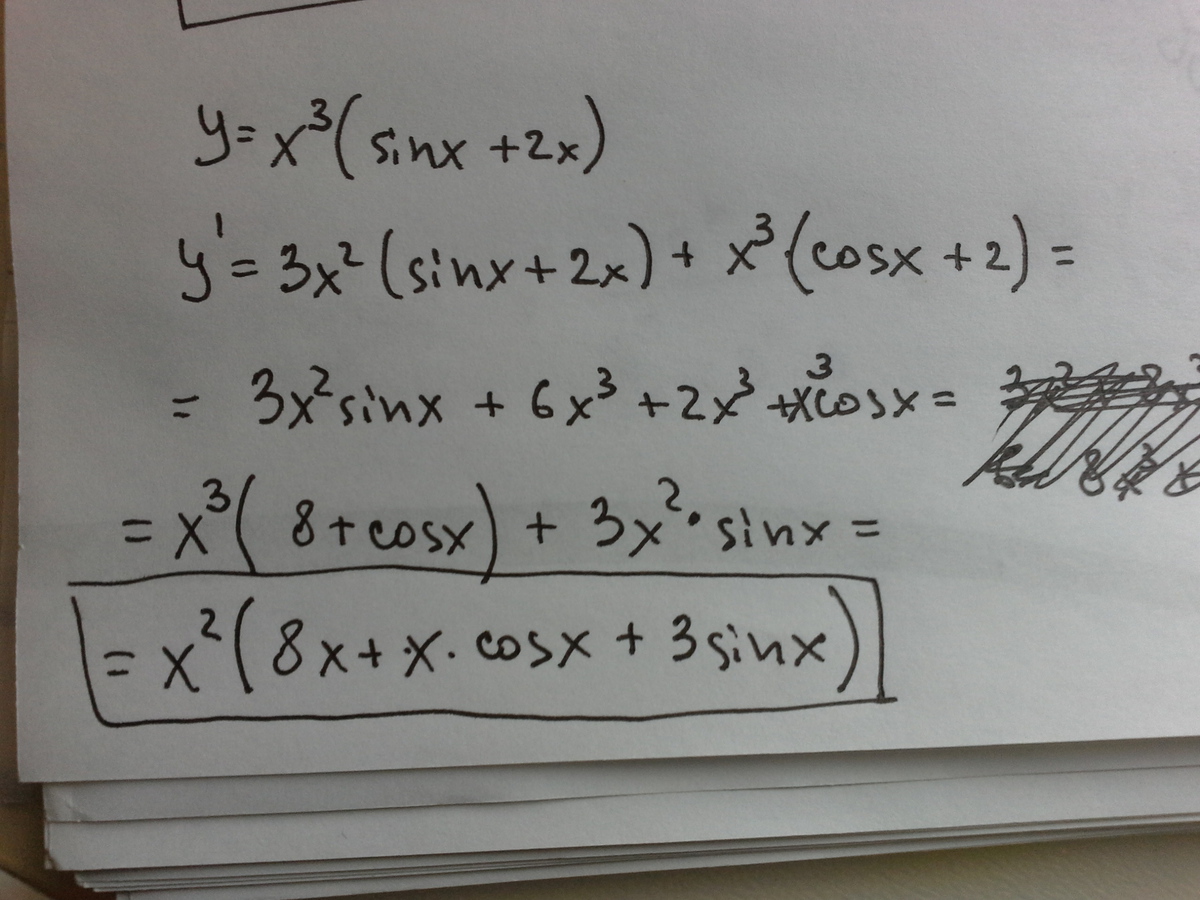 y=x³(sinx+2x)
y'=3x²(sinx+2x)+x³·(cosx+2)=
=3x²sinx+6x³+2x³+x³cosx=
=x³(8+cosx)+3x²·sinx=
=x²(8x+x·cosx+3sinx)